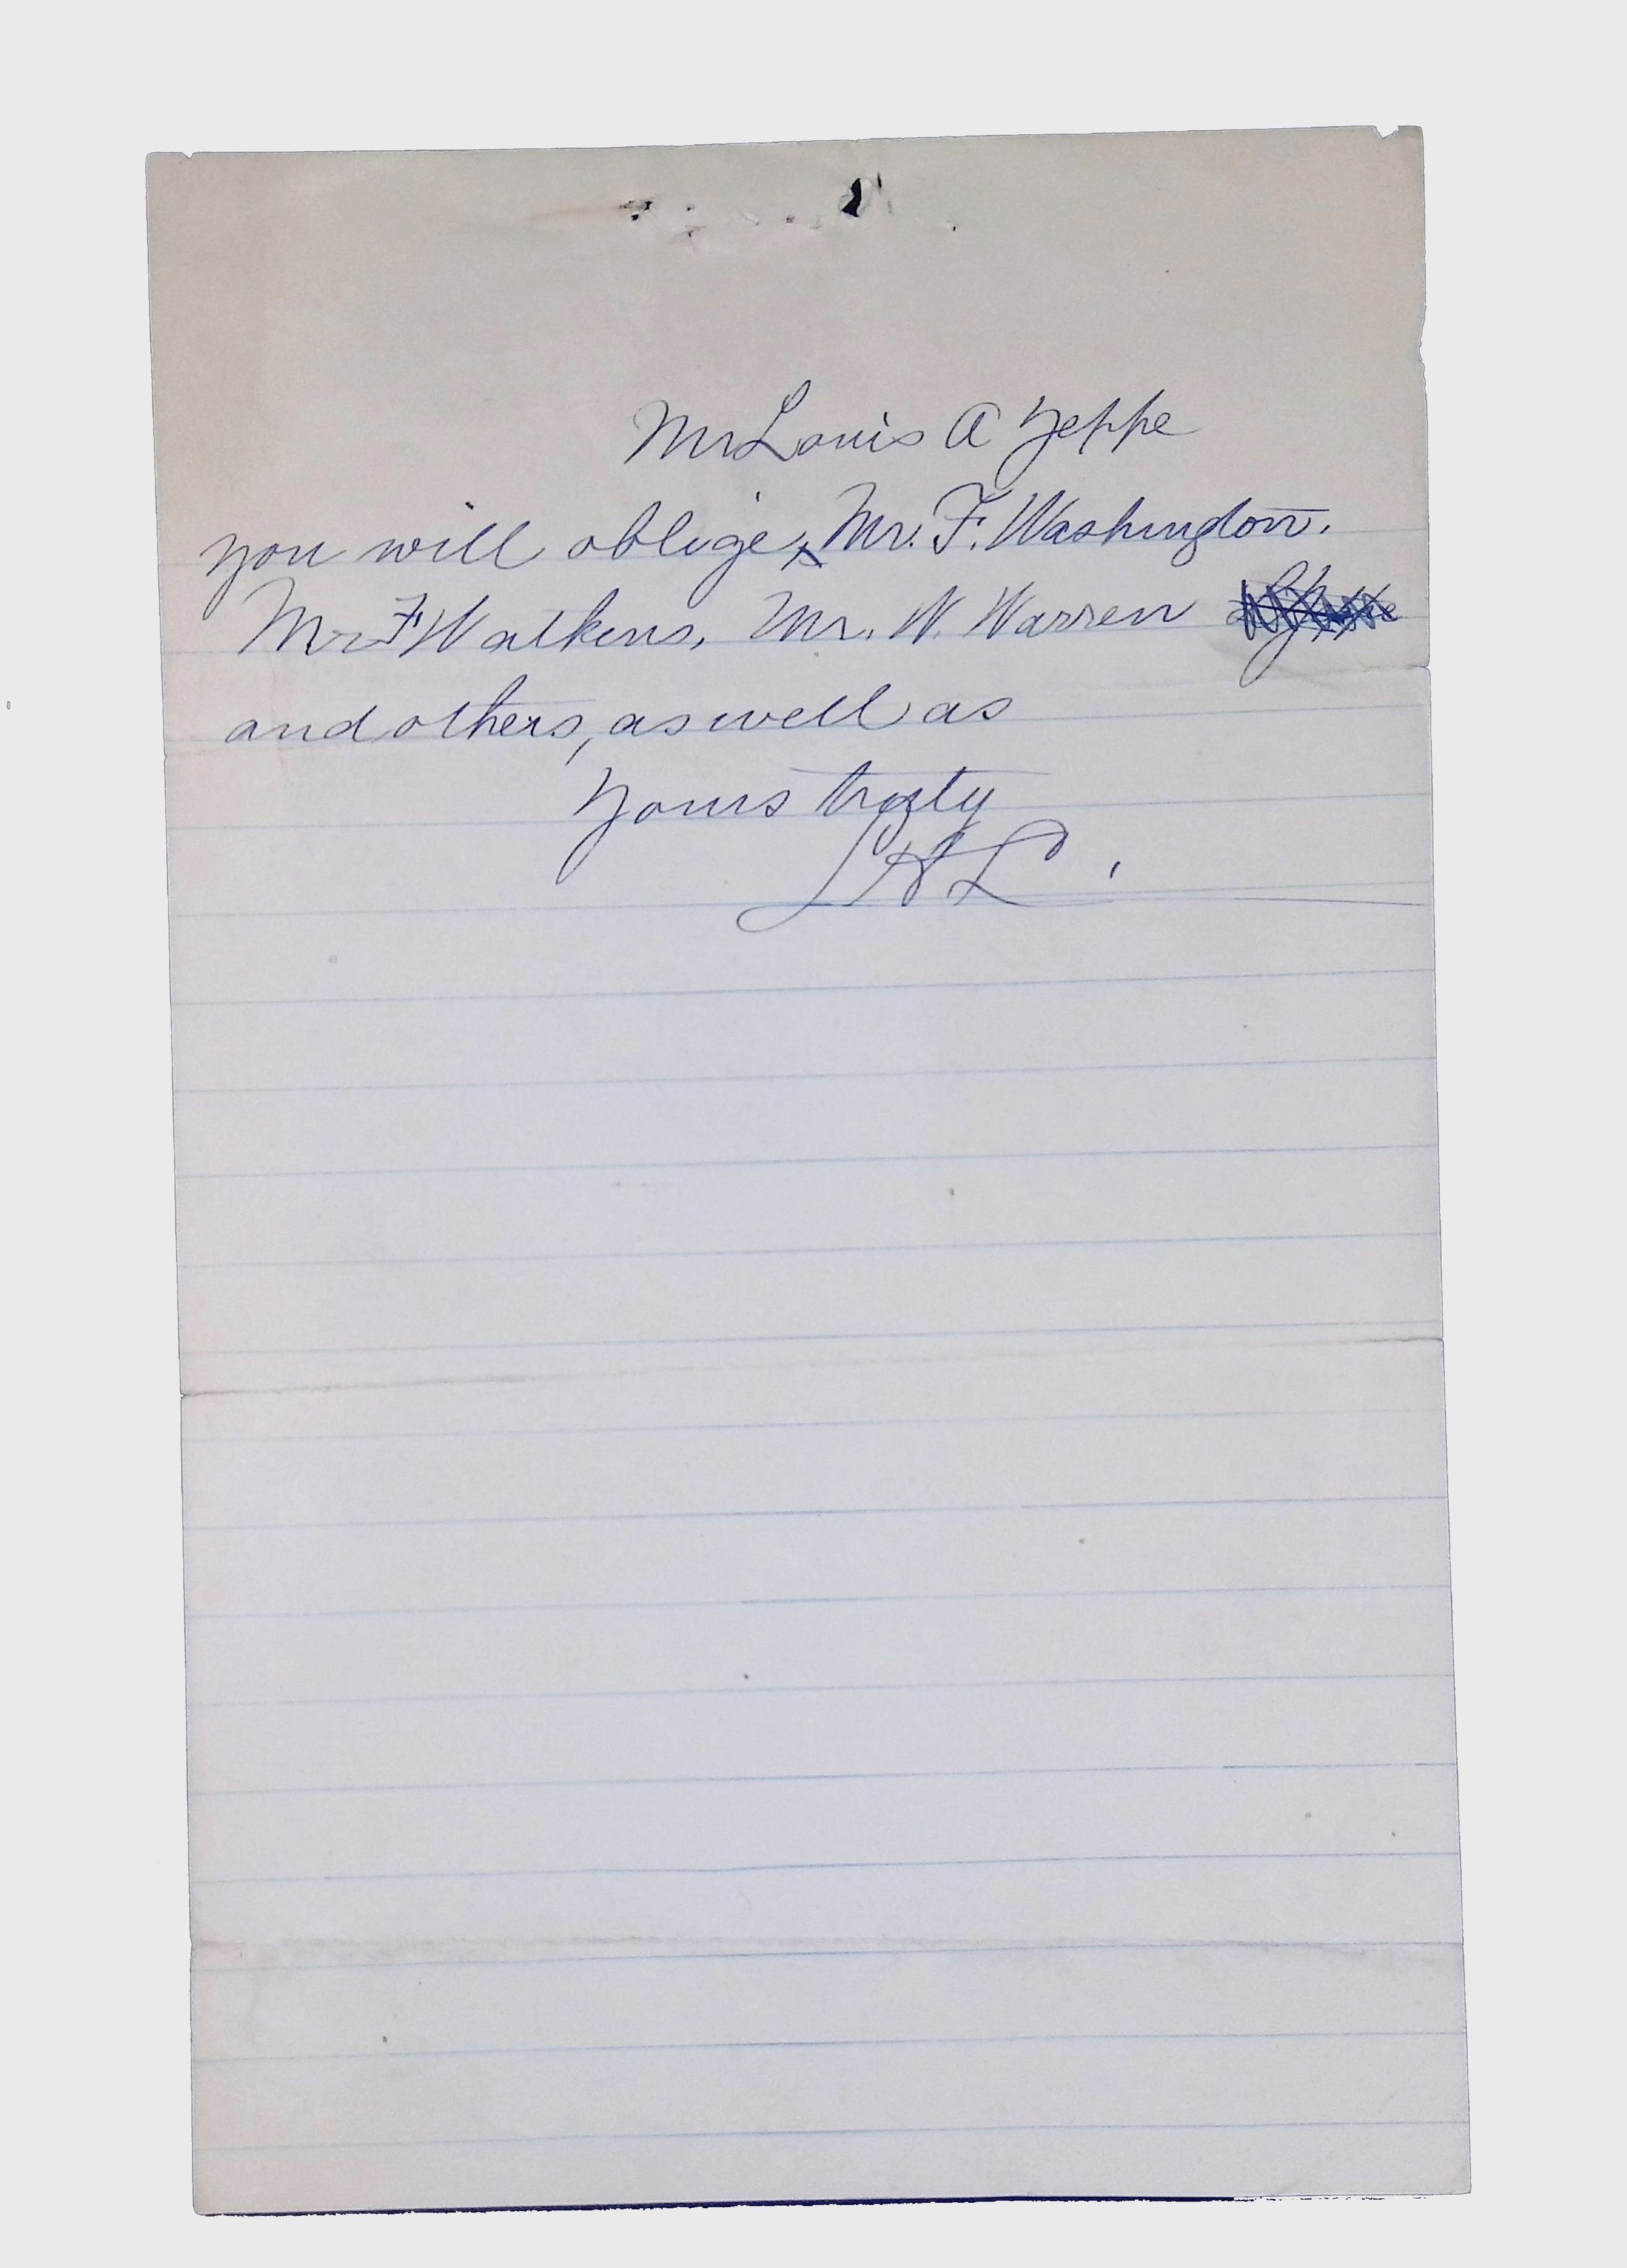 Mr Louis A Yeppe
you will oblige, Mr. F. Washington.
Mr F Watkins, Mr. W. Warren
and others, as well as
Yours